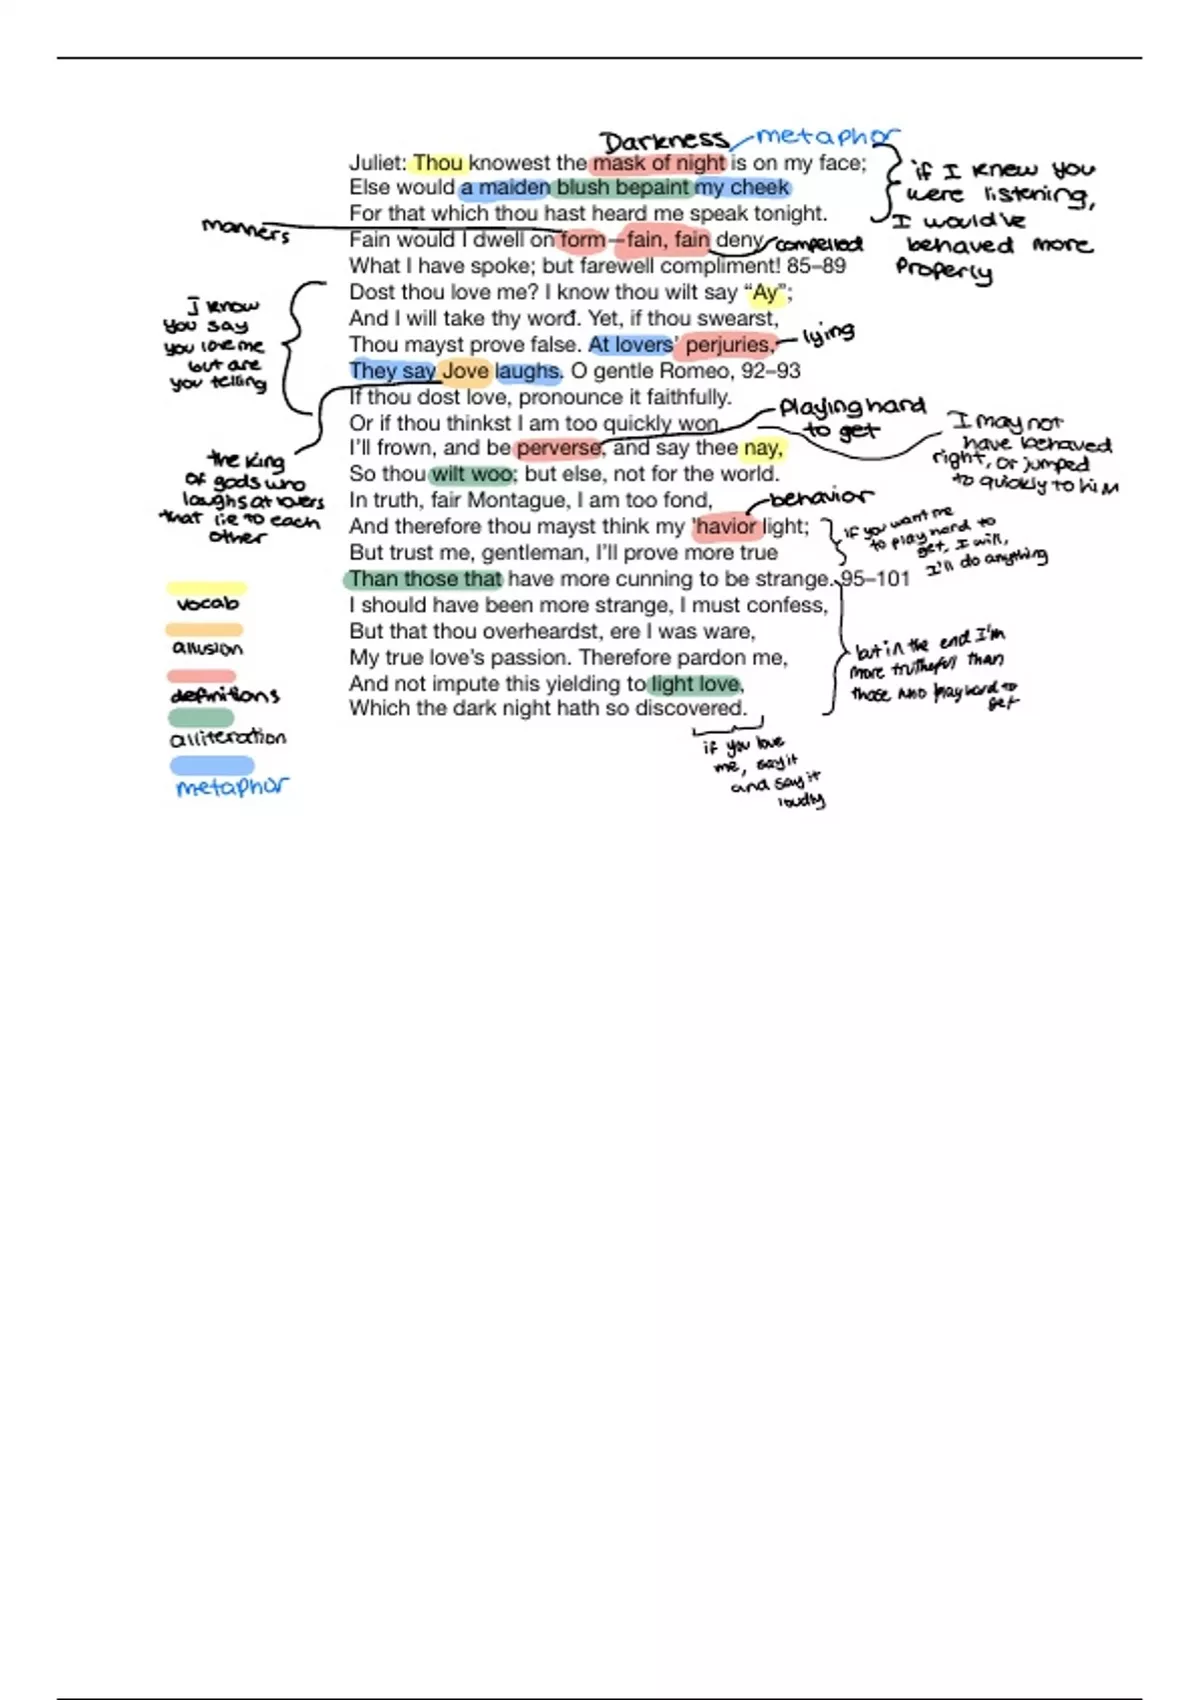 Darkness metaphor
Juliet: Thou knowest the mask of night is on my face;
Else would a maiden blush bepaint my cheek
For that which thou hast heard me speak tonight.
Fain would I dwell on form—fain, fain deny
What I have spoke; but farewell compliment! 85–89
Dost thou love me? I know thou wilt say “Ay”;
And I will take thy word. Yet, if thou swearst,
Thou mayst prove false. At lovers’ perjuries,
They say Jove laughs. O gentle Romeo, 92–93
If thou dost love, pronounce it faithfully.
Or if thou thinkst I am too quickly won,
I’ll frown, and be perverse, and say thee nay,
So thou wilt woo; but else, not for the world.
In truth, fair Montague, I am too fond,
And therefore thou mayst think my ’havior light;
But trust me, gentleman, I’ll prove more true
Than those that have more cunning to be strange. 95–101
I should have been more strange, I must confess,
But that thou overheardst, ere I was ware,
My true love’s passion. Therefore pardon me,
And not impute this yielding to light love,
Which the dark night hath so discovered.
if I knew you
were listening,
I would've
behaved more
properly
manners
compelled
I know
you say
you love me
but are
you telling
lying
the king
of gods who
laughs at lovers
that lie to each
other
Playing hard
to get
I may not
have behaved
right, or jumped
to quickly to him
behavior
if you want me
to play hard to
get, I will,
I'll do anything
but in the end I'm
more truthful than
those who play hard to
get
if you love
me, say it
and say it
loudly
vocab
allusion
definitions
alliteration
metaphor